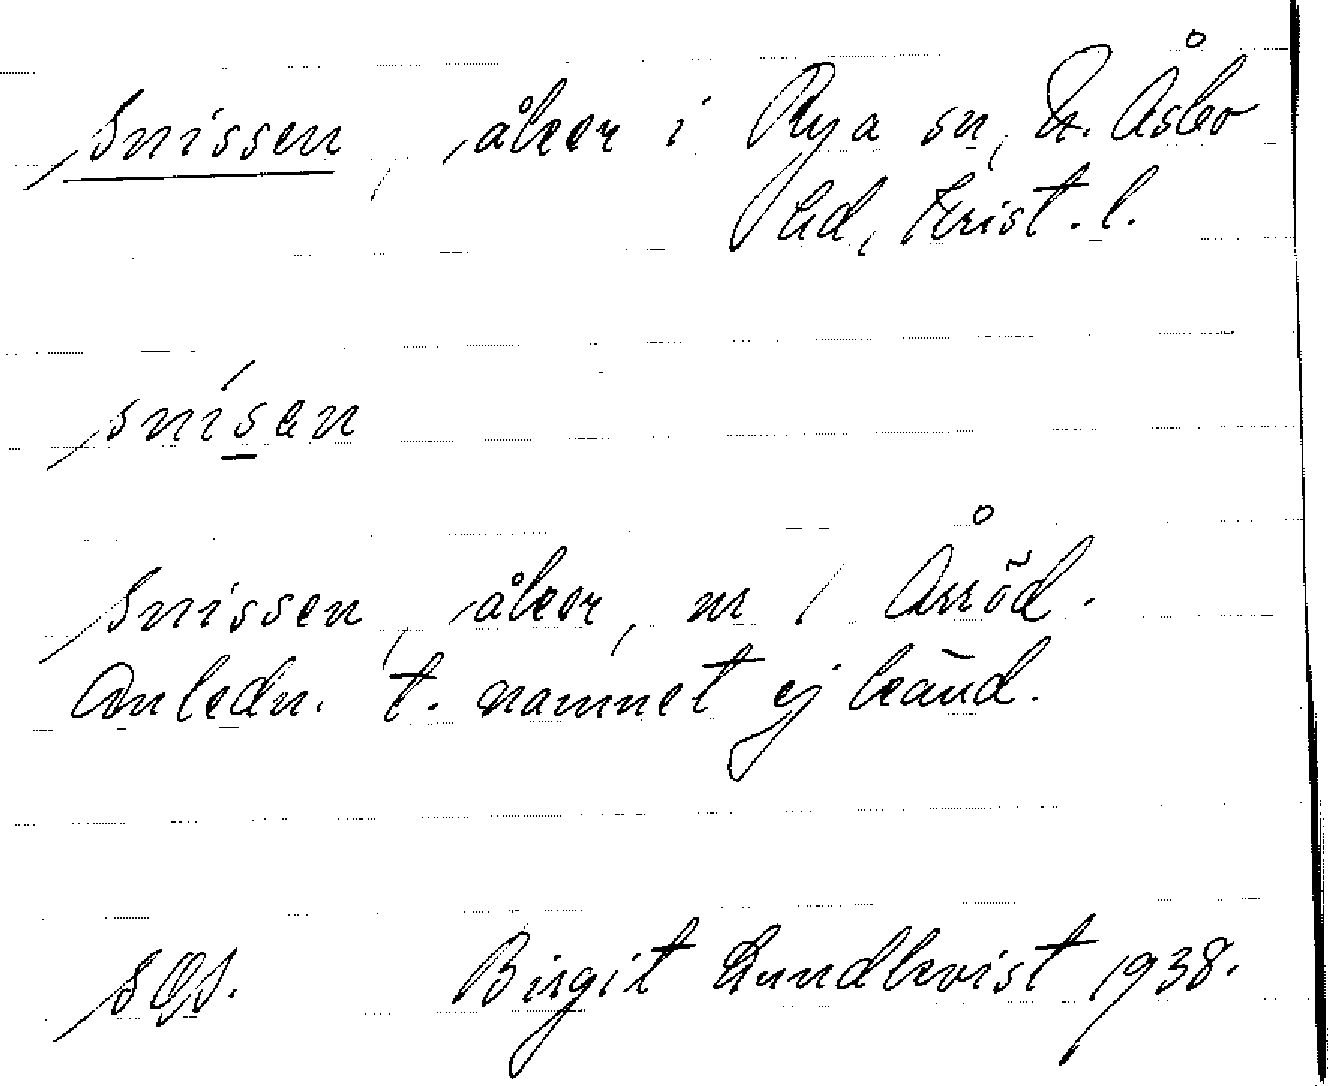 Snissen, åker i Rya sn, N. Åsbo
hd, Krist. l.
snísen
Snissen, åker, m / Arröd.
Anledn. t. namnet ej känd.
Birgit Lundkvist 1938.